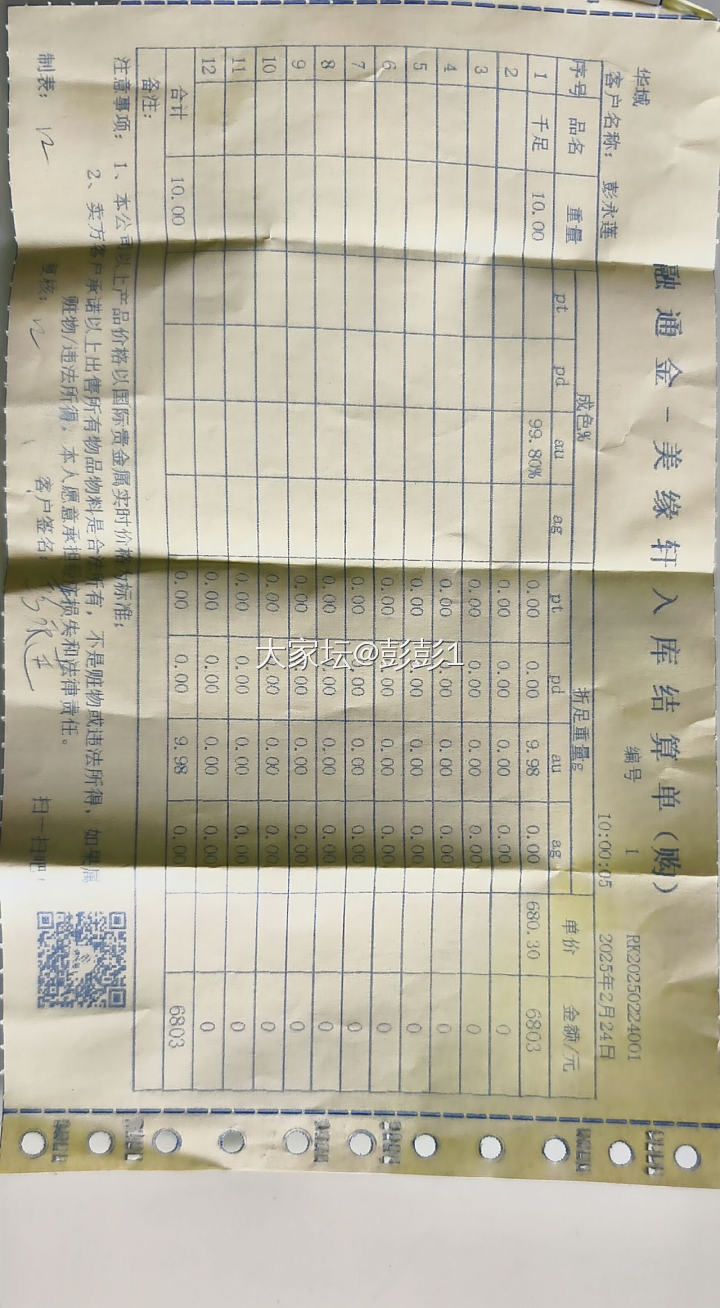 融通金-美缘轩入库结算单(购)
华城
编号 1 RK20250224001
客户名称: 彭永莲 10:00:05 2025年2月24日
序号 品名 重量 成色% 折足重量g 单价 金额/元
pt pd au ag pt pd au ag
1 千足 10.00 99.80% 0.00 0.00 9.98 0.00 680.30 6803
2 0.00 0.00 0.00 0.00 0
3 0.00 0.00 0.00 0.00 0
4 0.00 0.00 0.00 0.00 0
5 0.00 0.00 0.00 0.00 0
6 0.00 0.00 0.00 0.00 0
7 0.00 0.00 0.00 0.00 0
8 0.00 0.00 0.00 0.00 0
9 0.00 0.00 0.00 0.00 0
10 0.00 0.00 0.00 0.00 0
11 0.00 0.00 0.00 0.00 0
12 0.00 0.00 0.00 0.00 0
合计 10.00 0.00 0.00 9.98 0.00 6803
备注:
注意事项: 1、本公司以上产品价格以国际贵金属实时价格为标准;
2、卖方客户承诺以上出售所有物品物料是合法所有,不是赃物或违法所得,如果属
赃物/违法所得,本人愿意承担一切损失和法律责任。
制表: 复核: 客户签名: 扫一扫吧!
大家坛@彭彭1